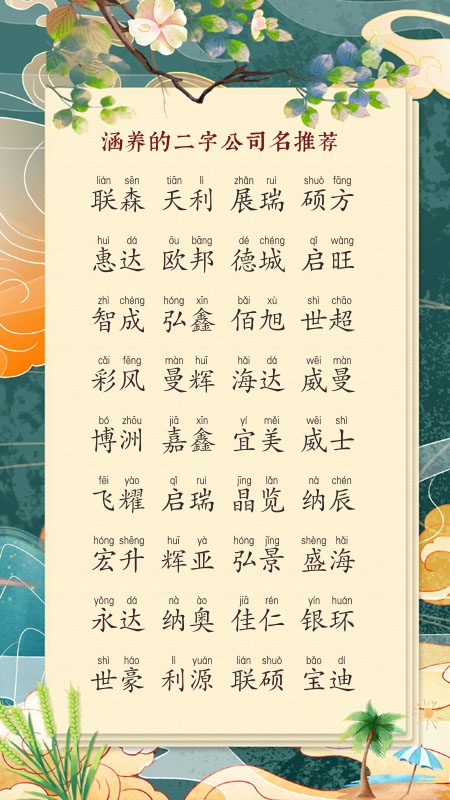 涵养的二字公司名推荐
lián sēn tiān lì zhǎn ruì shuò fāng
联森 天利 展瑞 硕方
huì dá ōu bāng dé chéng qǐ wàng
惠达 欧邦 德城 启旺
zhì chéng hóng xīn bǎi xù shì chāo
智成 弘鑫 佰旭 世超
cǎi fēng màn huī hǎi dá wēi màn
彩风 曼辉 海达 威曼
bó zhōu jiā xīn yí měi wēi shì
博洲 嘉鑫 宜美 威士
fēi yào qǐ ruì jīng lǎn nà chén
飞耀 启瑞 晶览 纳辰
hóng shēng huī yà hóng jǐng shèng hǎi
宏升 辉亚 弘景 盛海
yǒng dá nà ào jiā rén yín huán
永达 纳奥 佳仁 银环
shì háo lì yuán lián shuò bǎo dí
世豪 利源 联硕 宝迪